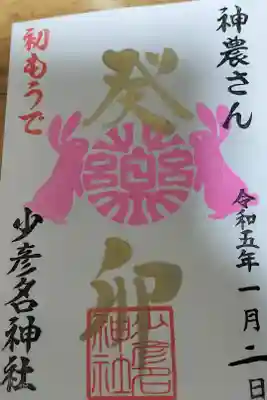 神農さん
令和五年一月二日
癸卯
薬
少彦名神社
初もうで
少彦名神社